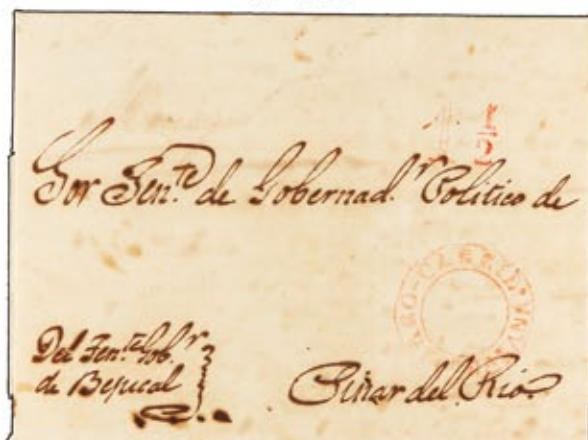 Sor Ten.te de Gobernad.r Politico de
Del Ten.te Gob.r
de Bejucal
Pinar del Rio.